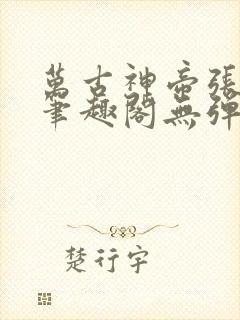 萬古神帝張
筆趣閣無彈
楚行宇